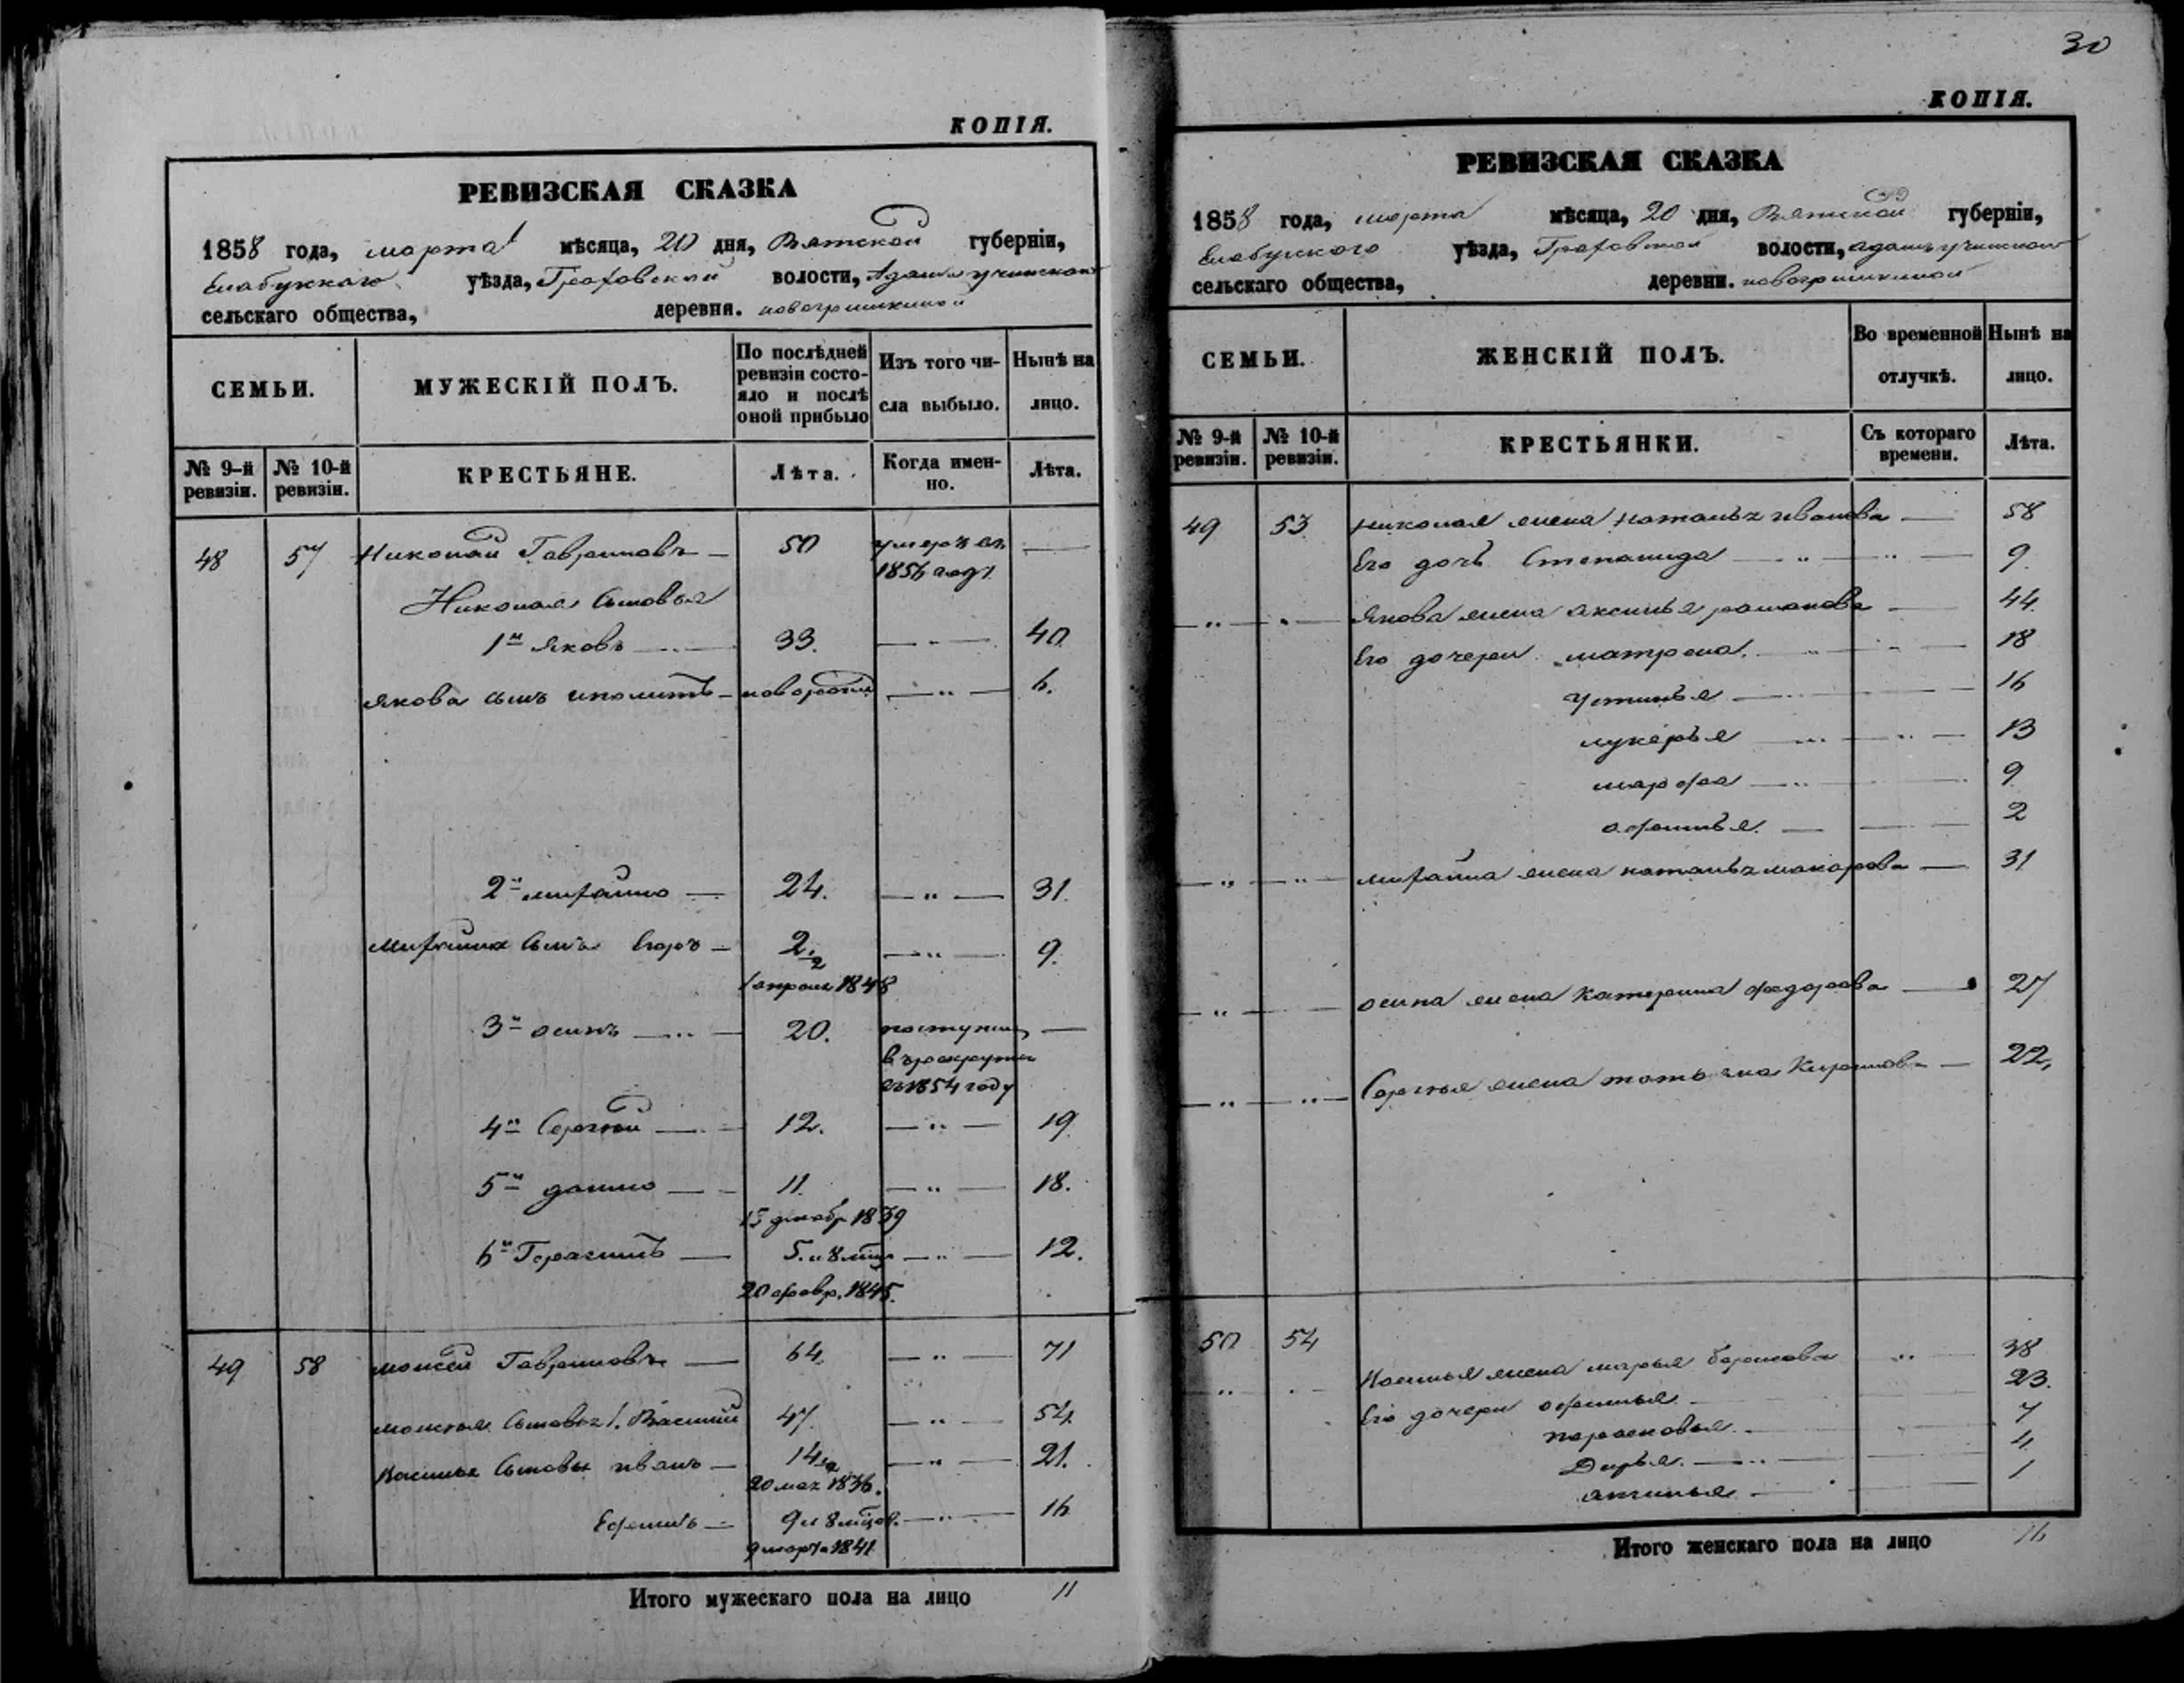 КОПІЯ.
РЕВИЗСКАЯ СКАЗКА
1858 года, марта мѣсяца, 20 дня, Вятской губерніи,
Елабужскаго уѣзда, Граховской волости,
сельскаго общества, деревня. новогришкиной
СЕМЬИ. МУЖЕСКІЙ ПОЛЪ. По послѣдней ревизіи состояло и послѣ оной прибыло Изъ того числа выбыло. Нынѣ на лицо.
№ 9-й ревизіи. № 10-й ревизіи. КРЕСТЬЯНЕ. Лѣта. Когда именно. Лѣта.
48 57 Николай Гавриловъ — 50 умеръ въ —
1856 году
Николая Сыновья
1й Яковъ — 33. — 40
Якова сынъ иполитъ — новорожд — „ — 6.
2й михайло — 24. — „ — 31.
Михайла Сынъ Егоръ — 2. — „ — 9.
1 апреля 1848
3й осипъ — „ — 20. поступилъ —
в рекруты
въ 1854 году
4й Сергѣй — 12. — „ — 19.
5й данило — 11. — „ — 18.
15 декабр 1839
6й Герасимъ — 5. и 8 мцъ — „ — 12.
20 февр. 1845.
49 58 моисей Гавриловъ — 64. — „ — 71
моисея Сыновья 1. Василий 47. — „ — 54.
Василья Сыновья иванъ — 14 — „ — 21.
20 мая 1836.
Ефимъ — 9 и 8 мцов. — „ — 16
9 марта 1841
Итого мужескаго пола на лицо 11
30
КОПІЯ.
РЕВИЗСКАЯ СКАЗКА
1858 года, марта мѣсяца, 20 дня, Вятской губерніи,
Елабужскаго уѣзда, Граховской волости,
сельскаго общества, деревни. новогришкиной
СЕМЬИ. ЖЕНСКІЙ ПОЛЪ. Во временной отлучкѣ. Нынѣ на лицо.
№ 9-й ревизіи. № 10-й ревизіи. КРЕСТЬЯНКИ. Съ котораго времени. Лѣта.
49 53 николая жена наталья иванова — 58
Его дочь Степанида — „ — „ — 9
— „ — Якова жена аксинья романова — 44
Его дочери матрена. — 18
устинья — 16
лукерья — 13
марфа — „ — 9
офимья. — 2
— „ — „ — михайла жена наталья макарова — 31
— „ — осипа жена Катерина федорова — 27
— „ — „ — Сергея жена татьяна Кирилова — 22,
50 54
— „ — Василья жена марья борисова „ 38
Его дочери офимья — 23.
парасковья. 7
Дарья. — „ 4
аксинья — 1
Итого женскаго пола на лицо 16